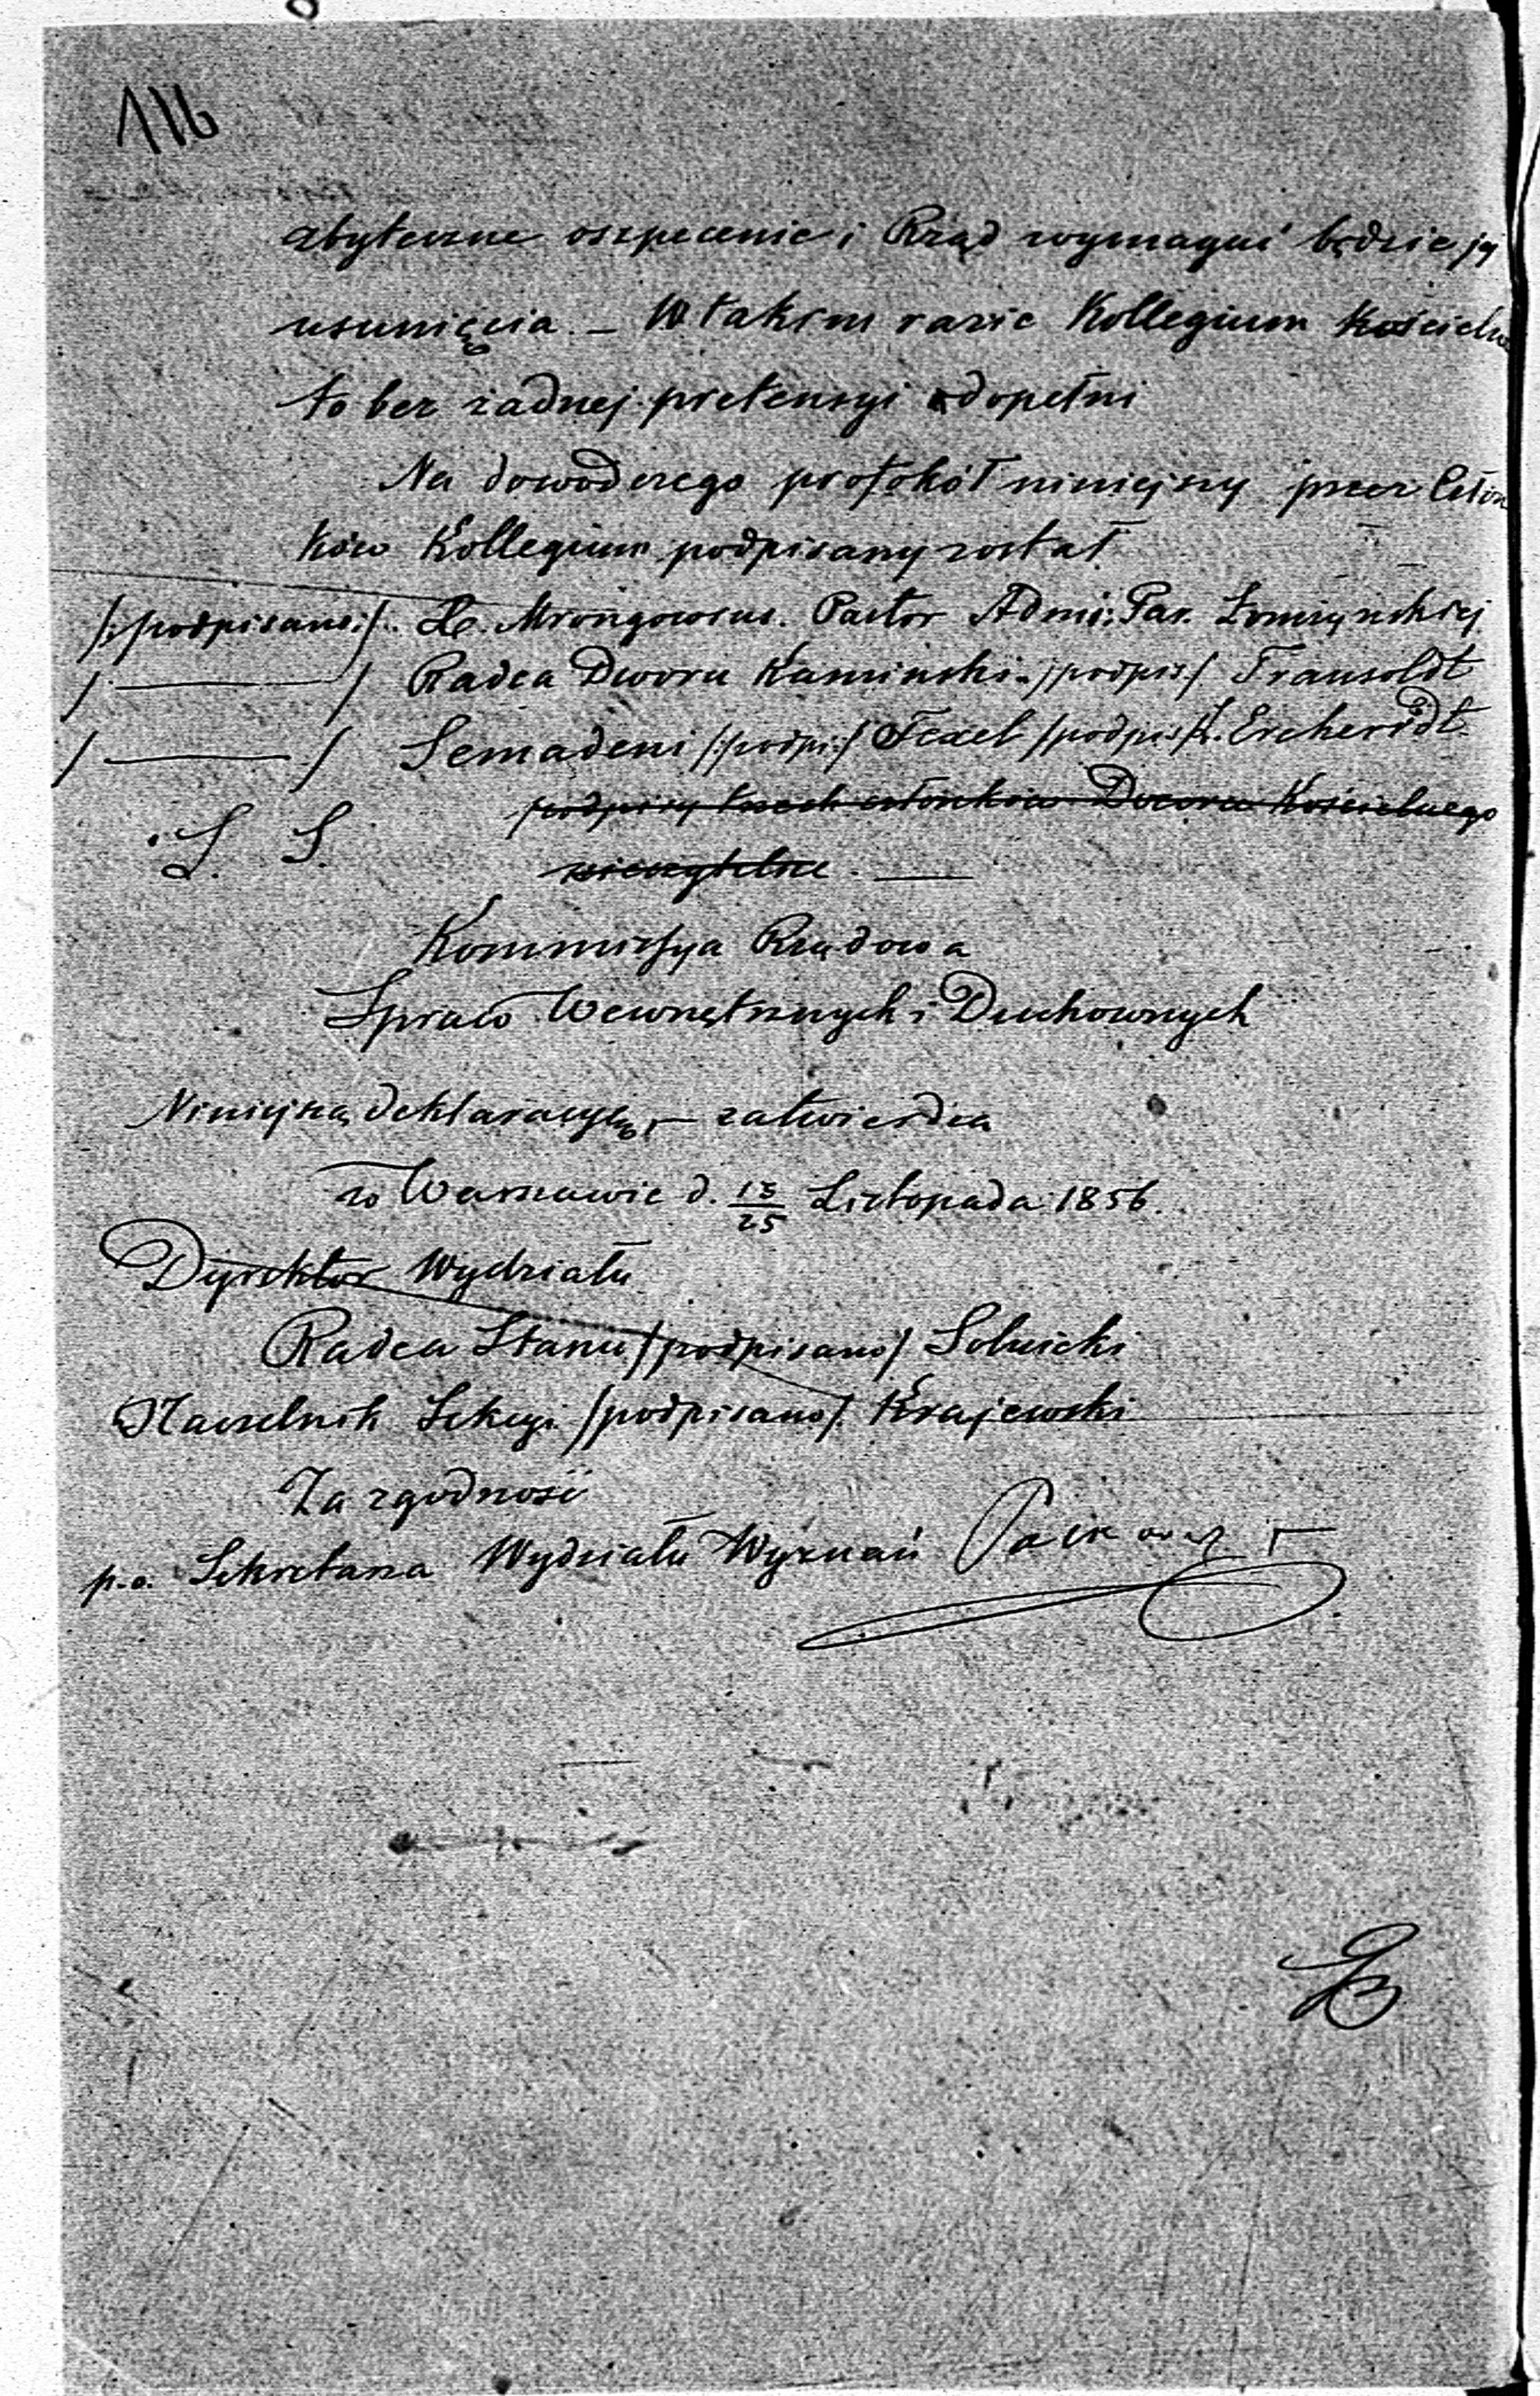 116
zbyteczne oszpecenie i Rząd wymagać będzie jej
usunięcia. – W takim razie Kollegium Kościelne
to bez żadnej pretensyi dopełni
Na dowód czego protokół niniejszy przez Człon
ków Kollegium podpisany został
/:podpisano:/. H. Mrongowius. Pastor Admi: Par. Łomżyńskiej
/ ——— / Radca Dworu Kamiński. /podpis./ Trausoldt
/ ——— / Semadeni /:podpi:/ Texel /podpis/
L. S. podpisy trzech członków Dozoru Kościelnego
nieczytelne. —
Kommissya Rządowa
Spraw Wewnętrznych i Duchownych
Niniejszą deklaracyę, – zatwierdza
w Warszawie d. 13/25 Listopada 1856.
Dyrektor Wydziału
Radca Stanu /podpisano/ Solnicki
Naczelnik Sekcyi /podpisano/. Krajewski
Za zgodność
p.o. Sekretarza Wydziału Wyznań